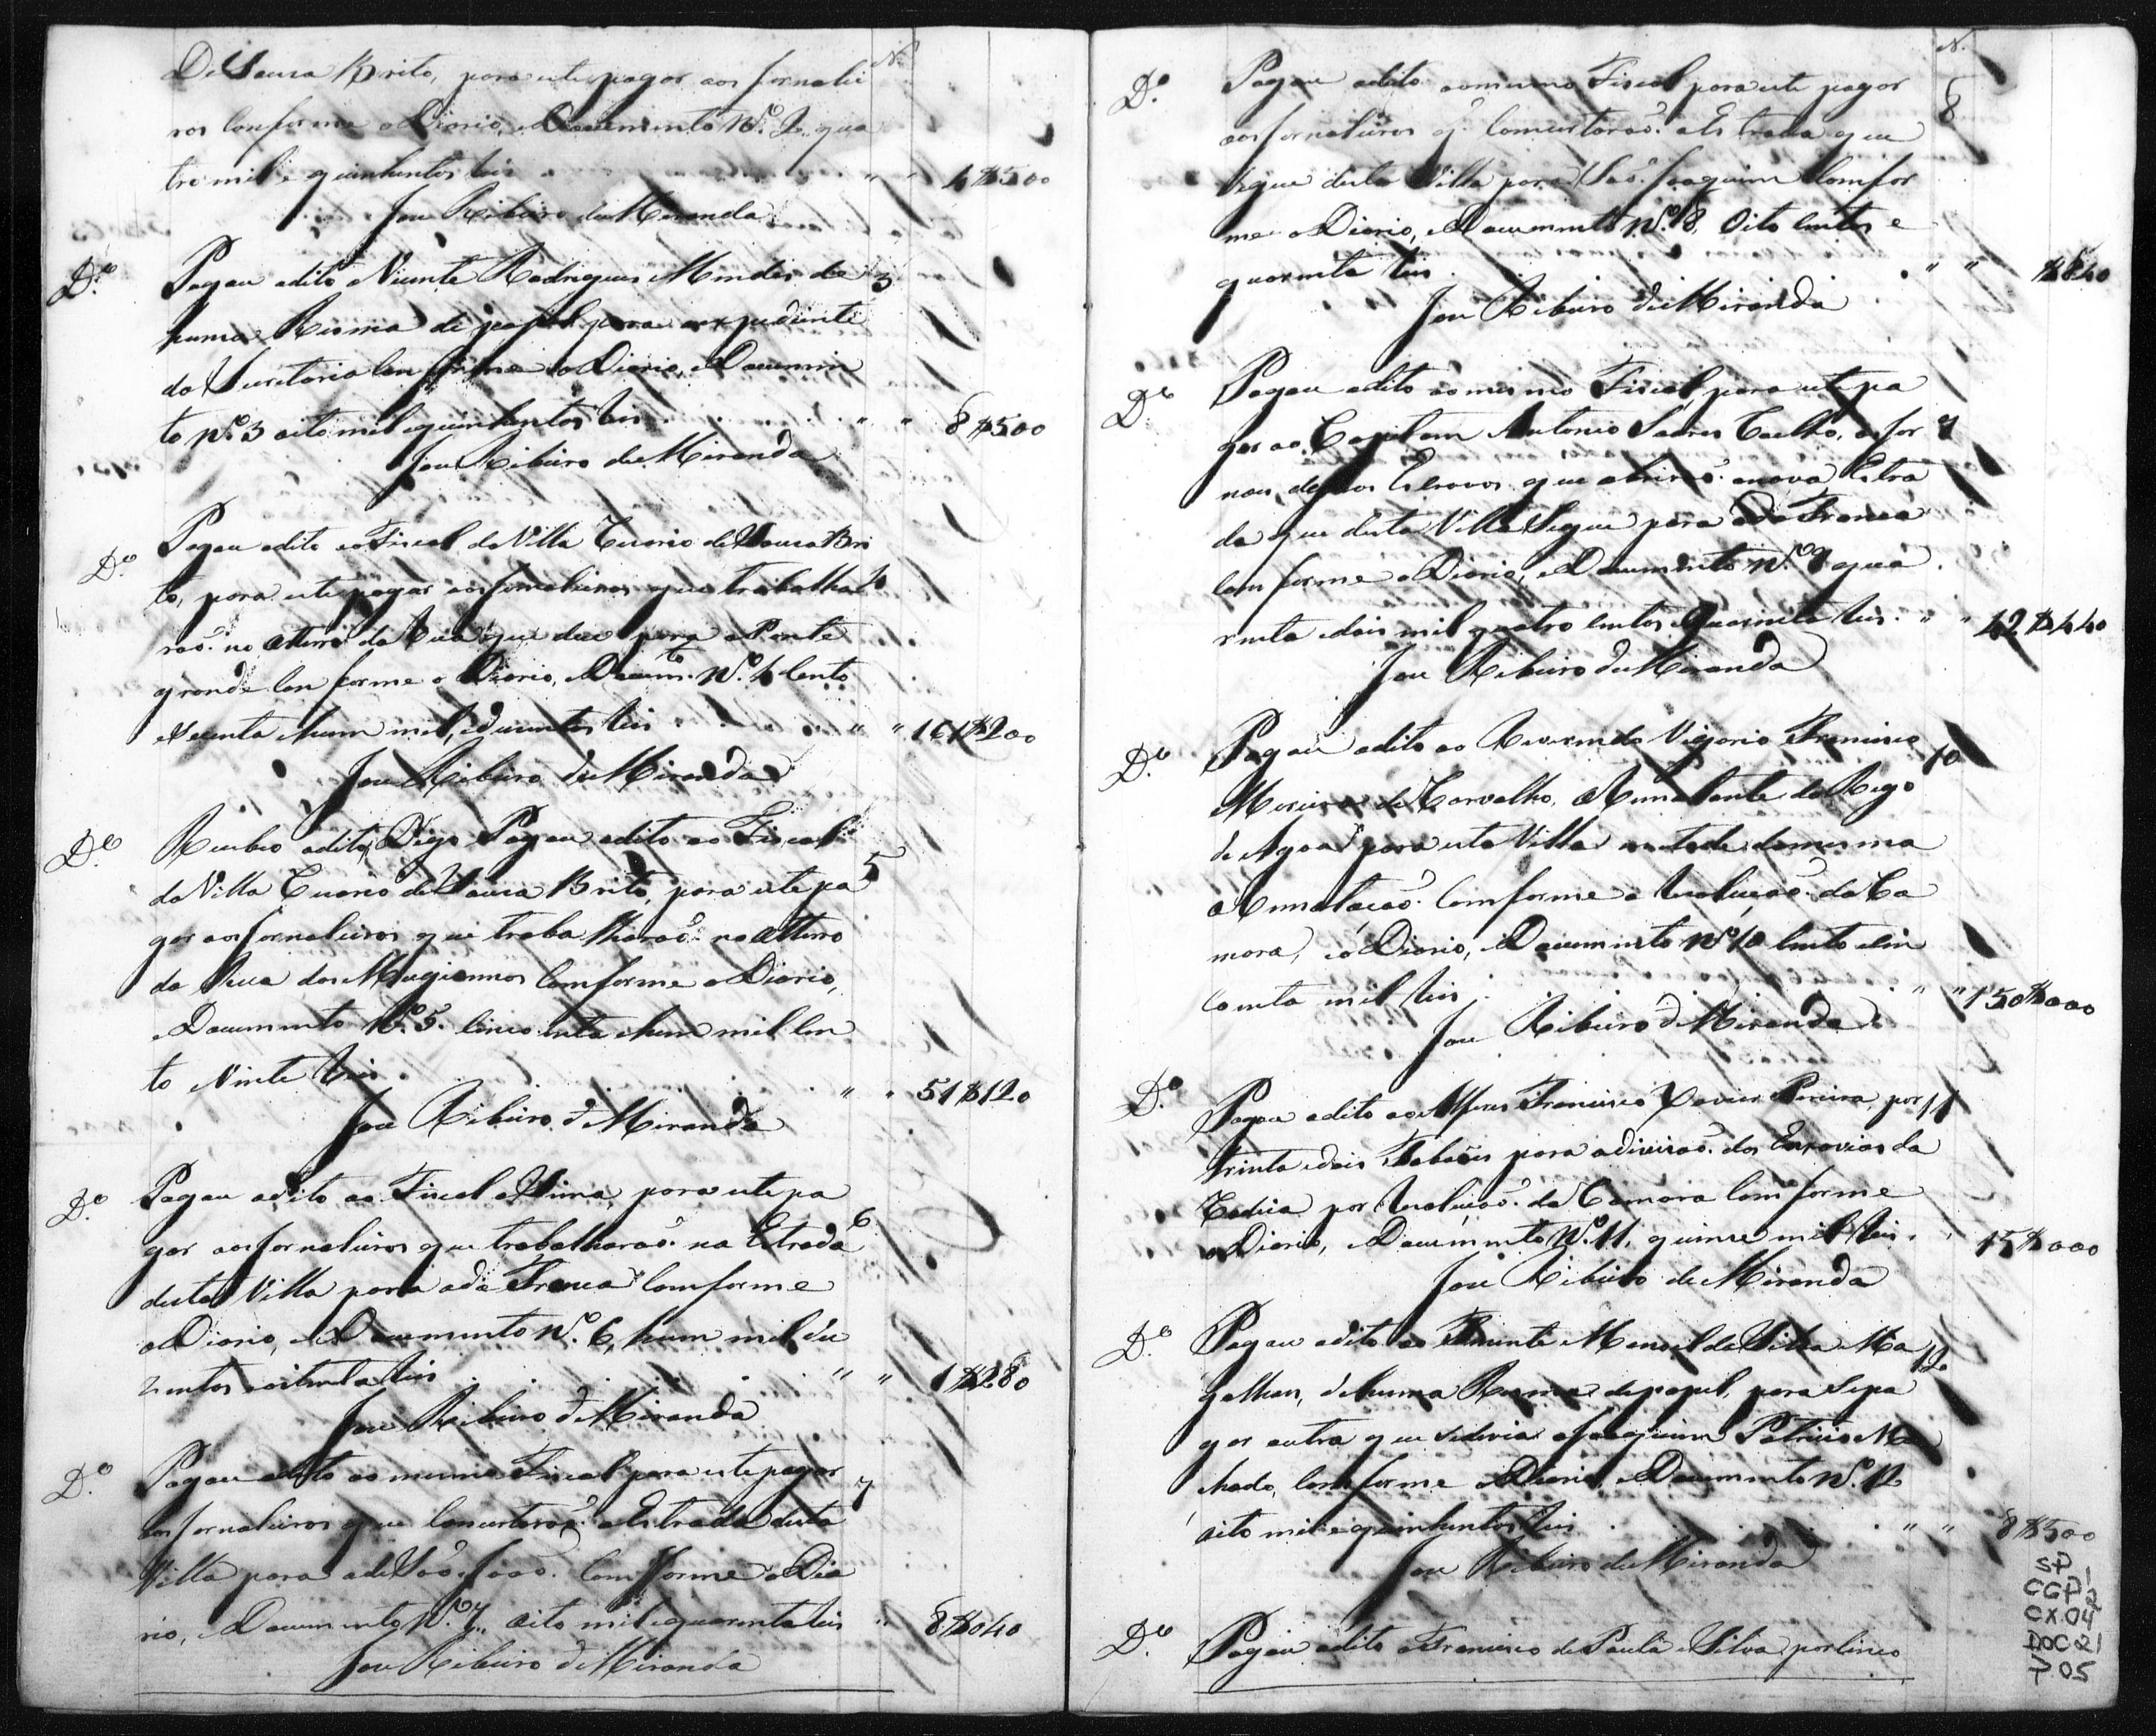 N.
De Souza Brito, para este pagar aos jornalei
ros Conforme o Diario, e Documento N.º 2 qua
tro mil e quinhentos reis " " 4$500
Joze Ribeiro de Miranda
D.º Pagou a dito Vicente Rodrigues Mendes de 3
huma Resma de papel para o expediente
da Secretaria Conforme o Diario, e Documen
to N.º 3 oito mil e quinhentos reis " " 8$500
Joze Ribeiro de Miranda
D.º Pagou a dito ao Fiscal da Villa Cezario de Souza Bri
to, para este pagar aos jornaleiros que trabalha 4
raõ no atterro da Rua que dece para a Ponte
grande Conforme o Diario, e Docum.to N.º 4 Cento
e Secenta e hum mil, e duzentos reis " " 161$200
Joze Ribeiro de Miranda
D.º Recebeo a dito, Digo Pagou a dito ao Fiscal
da Villa Cezario de Souza Brito, para este pa 5
gar aos jornaleiros que trabalharaõ no atterro
da Rua dos Mugiannos Comforme o Diario,
e Documento N.º 5. Cincoenta e hum mil Cen
to e Vinte reis " " 51$120
Joze Ribeiro de Miranda
D.º Pagou a dito ao Fiscal a Sima, para este pa
gar aos jornaleiros que trabalharaõ na Estrada 6
desta Villa para a da Franca Comforme
o Diario, e Documento N.º 6, hum mil du
zentos e oitenta reis " " 1$280
Joze Ribeiro de Miranda
D.º Pagou a dito ao mesmo Fiscal para este pagar
aos jornaleiros que Concertaraõ a Estrada desta 7
Villa para a de Saõ Joaõ Comforme o Dia
rio, e Documento N.º 7, oito mil e quarenta reis " 8$040
Joze Ribeiro de Miranda
N.
D.º Pagou a dito ao mesmo Fiscal para este pagar 8
aos jornaleiros q̃ Comcertaraõ a Estrada que
segue desta Villa para Saõ Joaquim Comfor
me o Diario, e Documento N.º 8, Oito Centos e
quarenta reis " " $840
Joze Ribeiro de Miranda
D.º Pagou a dito ao mesmo Fiscal, para este pa
gar ao Capitam Antonio Soares Coelho, os jor 9
naes de seos Escravos que abriraõ a nova Estra
da que desta Villa Segue para a da Franca
Comforme o Diario, e Documento N.º 9 qua
renta e dois mil quatro Centos e Quarenta reis " " 42$440
Joze Ribeiro de Miranda
D.º Pagou a dito ao Reverendo Vigario Francisco 10
Moreira de Carvalho, a Rematante do Rego
de Agoa para esta Villa metade da mesma
a Remataçaõ Comforme a rezoluçaõ da Ca
mara, e o Diario, e Documento N.º 10 Cento e Cin
Coenta mil reis " " 150$000
Joze Ribeiro de Miranda
D.º Pagou a dito ao Alferes Francisco Xavier Pereira, por 11
trinta e dois Taboões para a divizaõ das Enxovias da
Cadeia por rezoluçaõ da Camara Comforme
o Diario, e Documento N.º 11, quinze mil reis " 15$000
Joze Ribeiro de Miranda
D.º Pagou a dito ao Tenente Manoel da Silva Ma 12
galhaes, de huma Resma de papel, para Se pa
gar outra que se devia a Joaquim Patricio Ma
chado, Comforme o Diario, e Documento N.º 12
oito mil e quinhentos reis " " 8$500
Joze Ribeiro de Miranda
D.º Pagou a dito a Francisco de Paula e Silva por cinco
SP
CGP1-2
CX.04
DOC 21
P 05